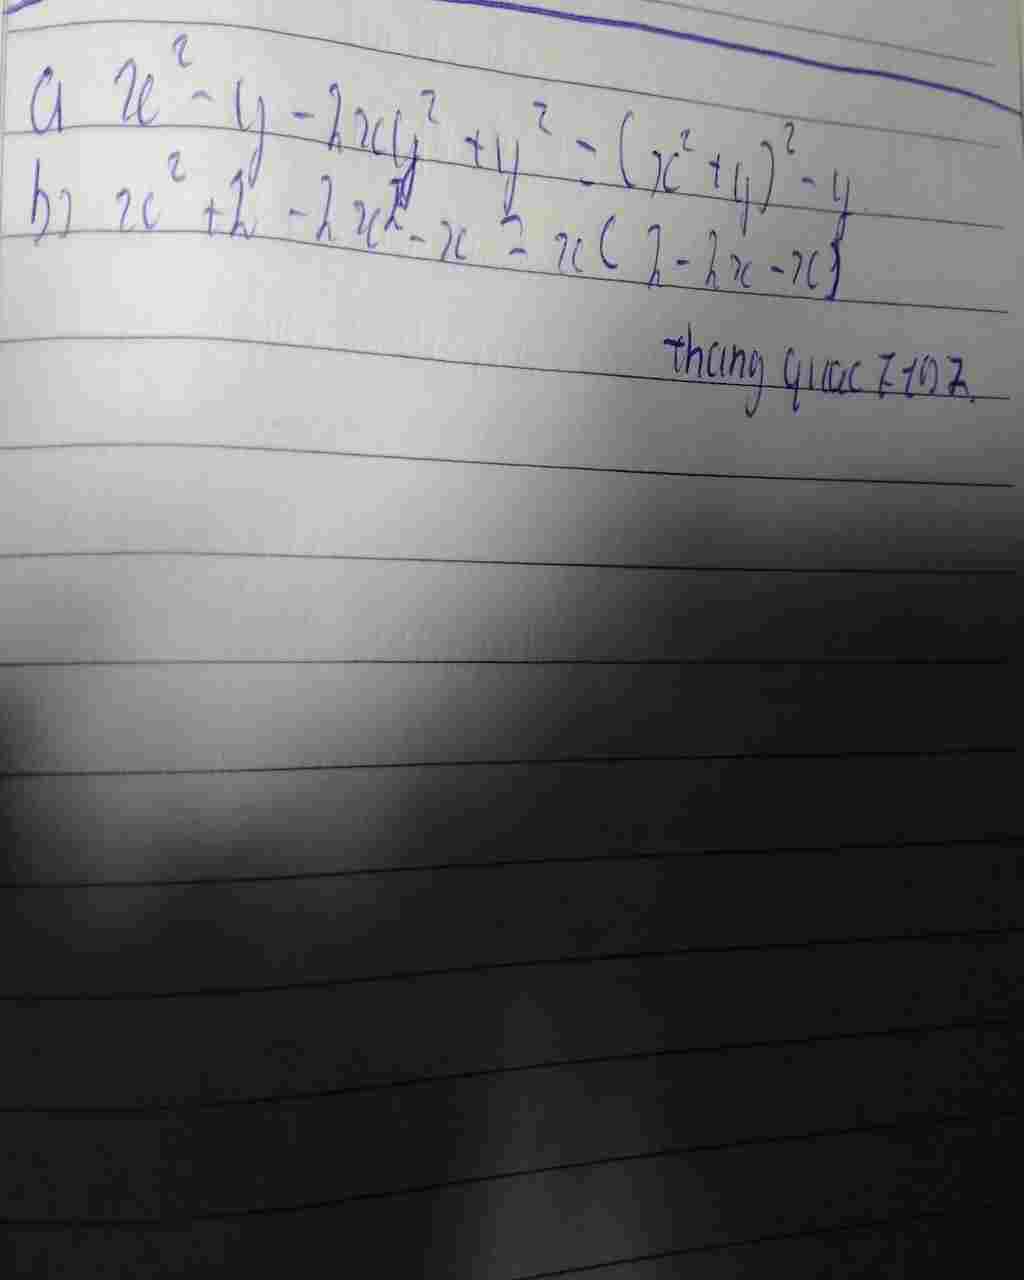 a x² - y - 2xy² + y² = (x² + y)² - y
b) x² + 2 - 2x² - x = x(2 - 2x - x)
thang quoc